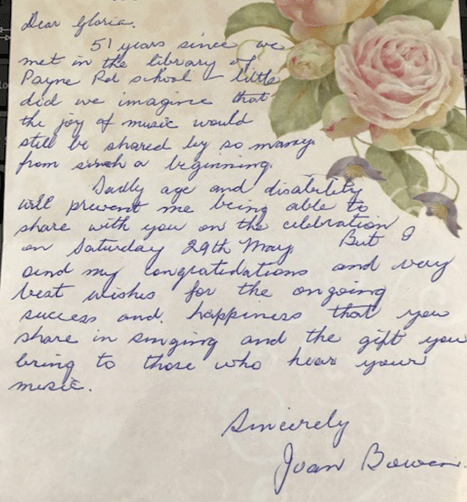 Dear Gloria.
51 years since we
met in the library of
Payne Rd school – little
did we imagine that
the joy of music would
still be shared by so many
from such a beginning.
Sadly age and disability
will prevent me being able to
share with you on the celbration
on Saturday 29th May But I
send my congratulations and very
best wishes for the ongoing
success and happiness that you
share in singing and the gift you
bring to those who hear your
music.
Sincerely
Joan Bowen.